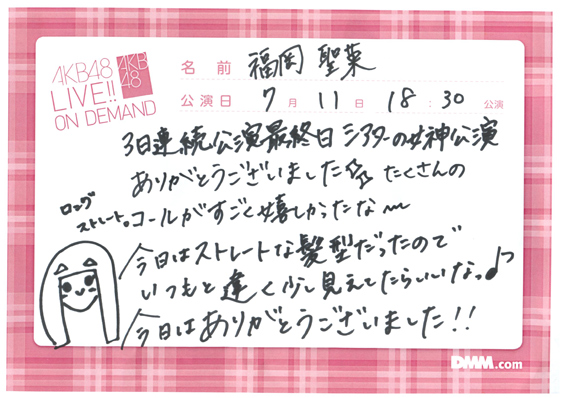 AKB48
LIVE!!
ON DEMAND
AKB
48
名前 福岡 聖菜
公演日 7月 11日 18:30 公演
3日連続公演最終日シアターの女神公演
ありがとうございました☆たくさんの
コールがすごく嬉しかったな〜
ロング
ストレート。
今日はストレートな髪型だったので
いつもと違く少し見えてたらいいな。♪
今日はありがとうございました!!
DMM.com